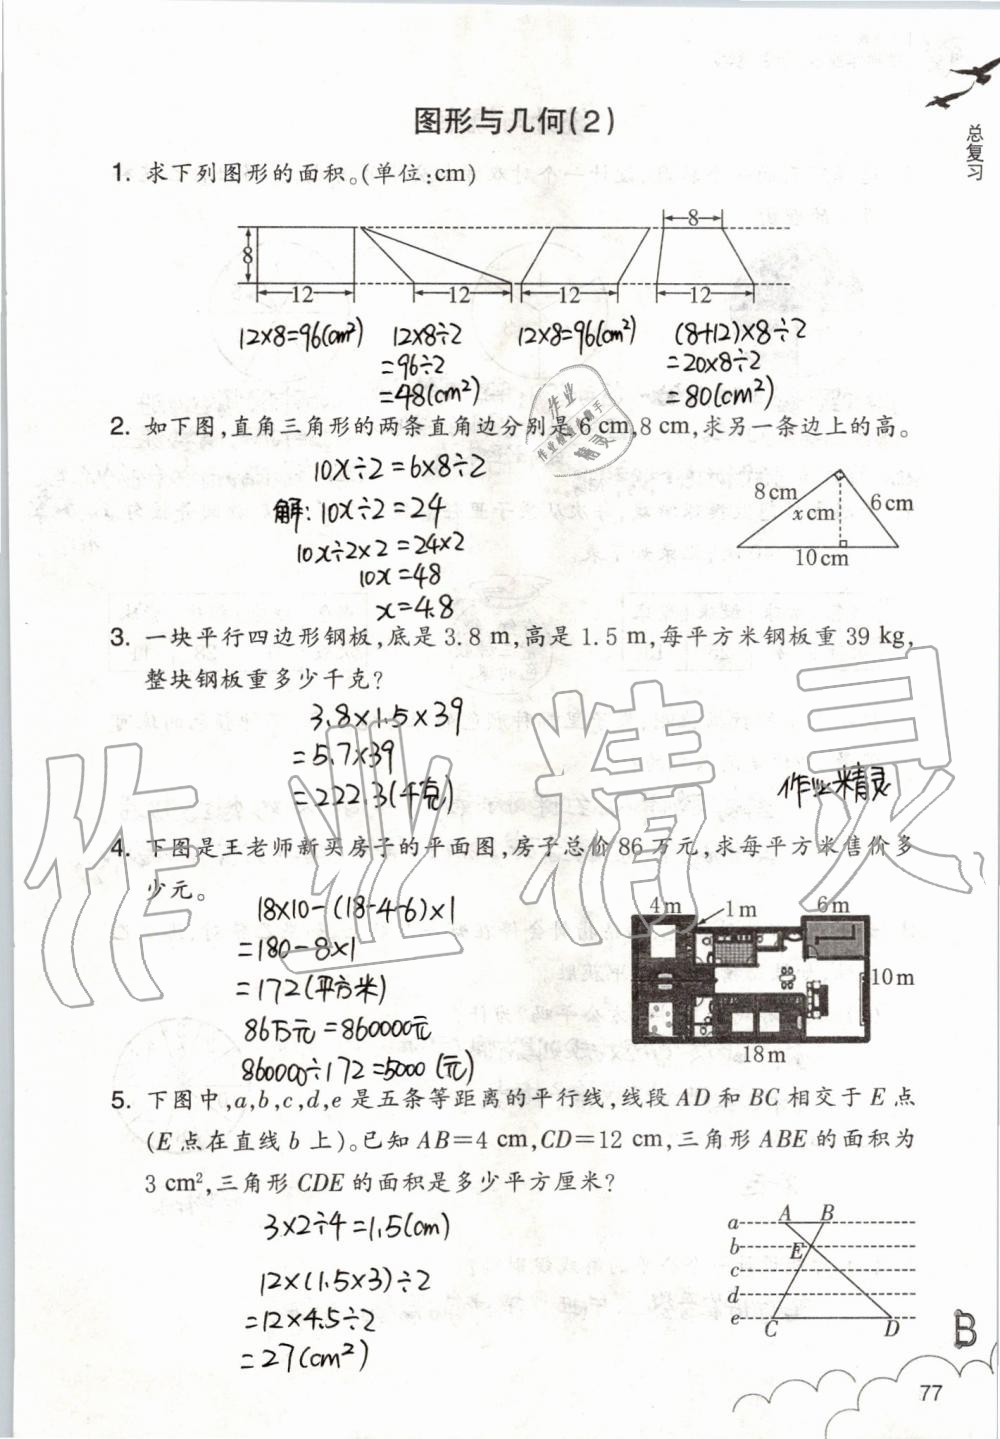 总复习
图形与几何(2)
1. 求下列图形的面积。(单位:cm)
8
8
12 12 12 12
12×8=96(cm²) 12×8÷2 12×8=96(cm²) (8+12)×8÷2
=96÷2 =20×8÷2
=48(cm²) =80(cm²)
2. 如下图,直角三角形的两条直角边分别是 6 cm,8 cm,求另一条边上的高。
10x÷2=6×8÷2
解:10x÷2=24
10x÷2×2=24×2
10x=48
x=4.8
8cm
x cm
6cm
10cm
3. 一块平行四边形钢板,底是 3.8 m,高是 1.5 m,每平方米钢板重 39 kg,
整块钢板重多少千克?
3.8×1.5×39
=5.7×39
=222.3(千克)
作业精灵
作业精灵
4. 下图是王老师新买房子的平面图,房子总价 86 万元,求每平方米售价多
少元。
18×10-(18-4-6)×1
=180-8×1
=172(平方米)
86万元=860000元
860000÷172=5000(元)
4m 1m 6m
10m
18m
5. 下图中,a,b,c,d,e 是五条等距离的平行线,线段 AD 和 BC 相交于 E 点
(E 点在直线 b 上)。已知 AB=4 cm,CD=12 cm,三角形 ABE 的面积为
3 cm²,三角形 CDE 的面积是多少平方厘米?
3×2÷4=1.5(cm)
12×(1.5×3)÷2
=12×4.5÷2
=27(cm²)
A B
a
b E
c
d
e
C D
B
77